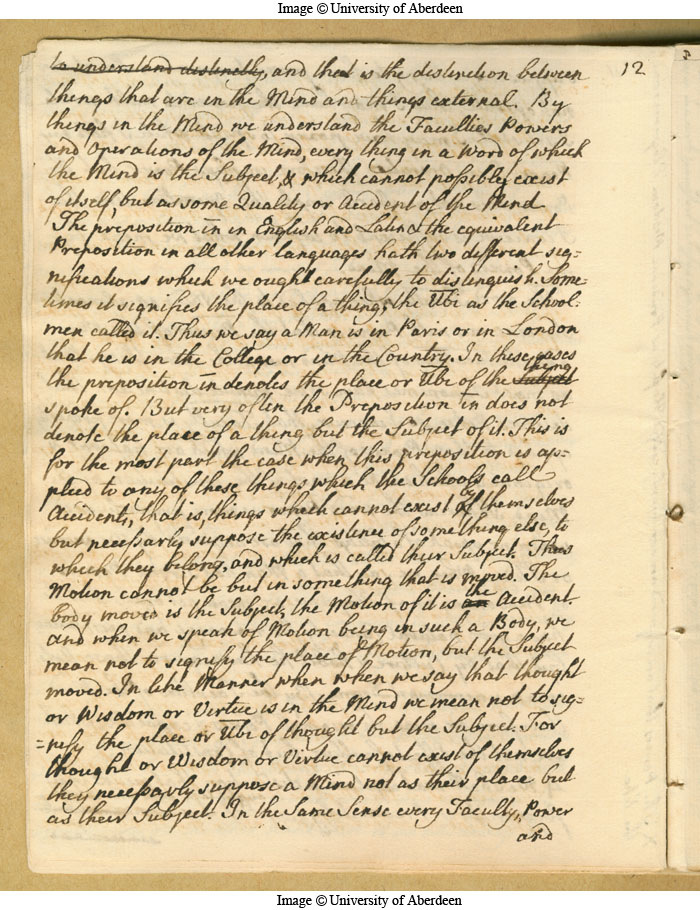 Image © University of Aberdeen
12
to understand distinctly, and that is the distinction between
things that are in the Mind and things external. By
things in the Mind we understand the Faculties Powers
and Operations of the Mind, every thing in a Word of which
the Mind is the Subject, & which cannot possibly exist
of itself, but as some Quality or Accident of the Mind
The preposition in in English and Latin & the equivalent
Preposition in all other languages hath two different sig=
nifications which we ought carefully to distinguish. Some=
times it signifies the place of a thing, the Ubi as the School-
men called it. Thus we say a Man is in Paris or in London
that he is in the College or in the Country. In these cases
thing
the preposition in denotes the place or Ubi of the Subject
spoke of. But very often the Preposition in does not
denote the place of a thing but the Subject of it. This is
for the most part the case when this preposition is ap=
plied to any of these things which the Schools call
Accidents, that is, things which cannot exist of themselves
but necessarly suppose the existence of something else, to
which they belong, and which is called their Subject. Thus
Motion cannot be but in something that is moved. The
the
body moved is the Subject, the Motion of it is an Accident.
And when we speak of Motion being in such a Body, we
mean not to signify the place of Motion, but the Subject
moved. In like Manner when when we say that thought
or Wisdom or Virtue is in the Mind we mean not to sig=
=nify the place or Ubi of thought but the Subject. For
thought or Wisdom or Virtue cannot exist of themselves
they necessarly suppose a Mind not as their place but
as their Subject. In the Same Sense every Faculty, Power
and
Image © University of Aberdeen